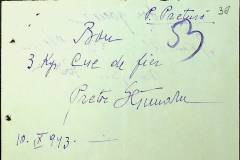 P. Pactură 38
53
Bon
3 Kgr Cue de fier
Pretor
10.X.943.